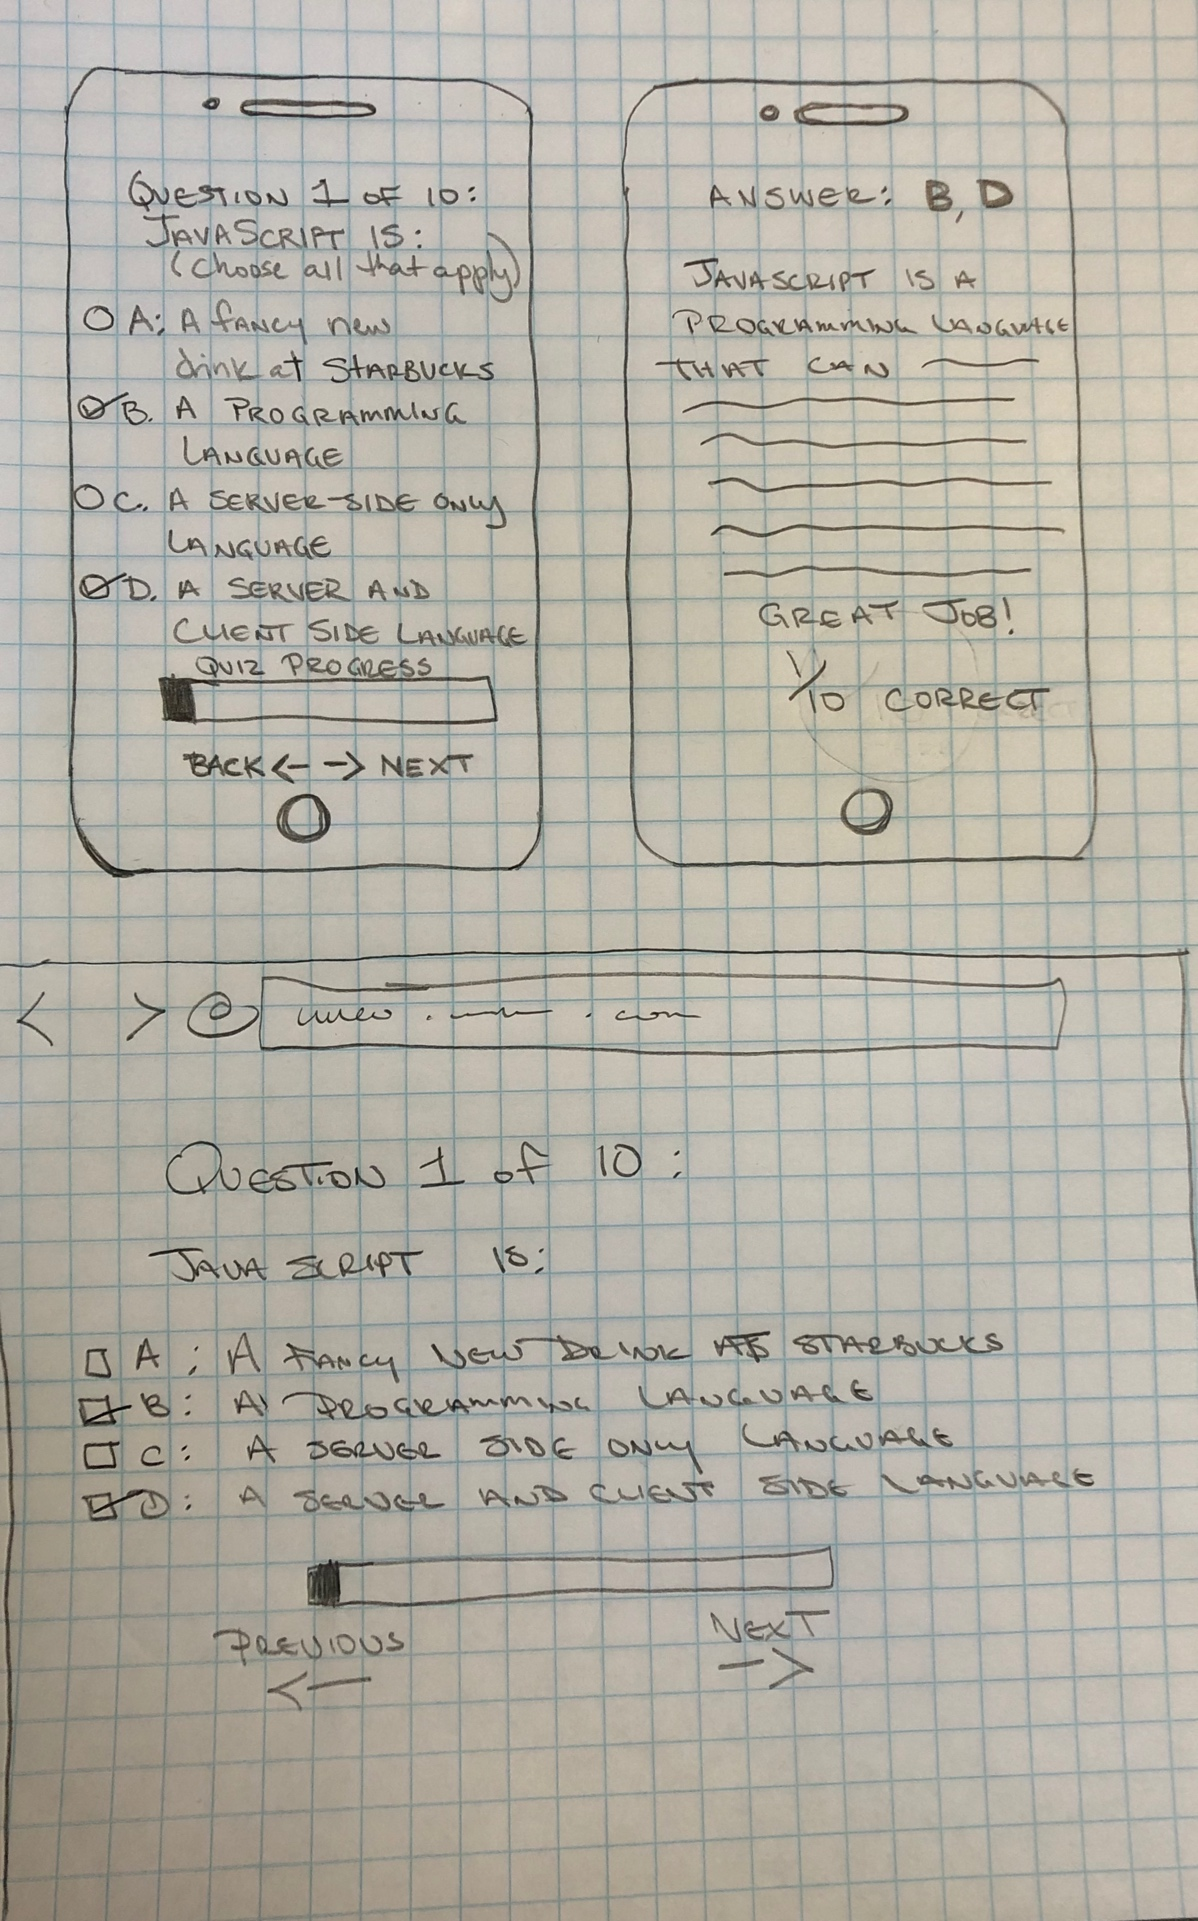 QUESTION 1 OF 10:
JAVASCRIPT IS:
(Choose all that apply)
A: A fancy new
drink at STARBUCKS
B. A PROGRAMMING
LANGUAGE
C. A SERVER-SIDE ONLY
LANGUAGE
D. A SERVER AND
CLIENT SIDE LANGUAGE
QUIZ PROGRESS
BACK <- -> NEXT
ANSWER: B, D
JAVASCRIPT IS A
PROGRAMMING LANGUAGE
THAT CAN
GREAT JOB!
1/10 CORRECT
QUESTION 1 of 10:
JAVA SCRIPT IS:
A: A FANCY NEW DRINK AT STARBUCKS
B: A PROGRAMMING LANGUAGE
C: A SERVER SIDE ONLY LANGUAGE
D: A SERVER AND CLIENT SIDE LANGUAGE
PREVIOUS NEXT
<- ->